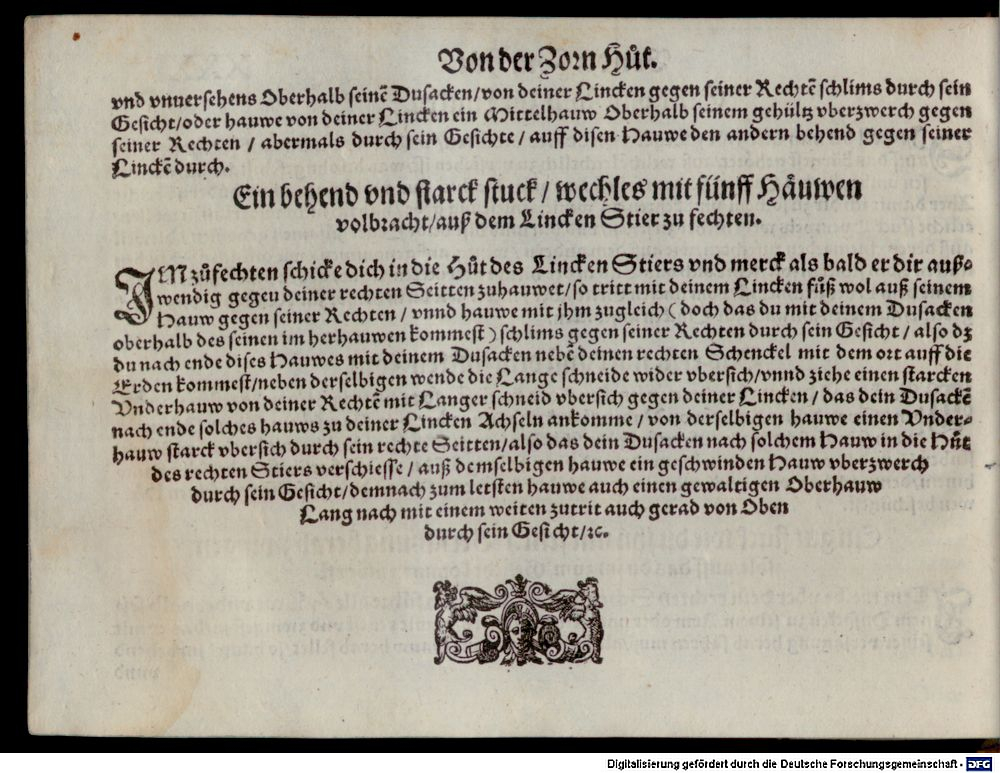 Von der Zorn Hůt.
vnd vnuersehens Oberhalb seinē Dusacken/von deiner Lincken gegen seiner Rechtē schlims durch sein
Gesicht/oder hauwe von deiner Lincken ein Mittelhauw Oberhalb seinem gehültz vberzwerch gegen
seiner Rechten / abermals durch sein Gesichte / auff disen Hauwe den andern behend gegen seiner
Linckē durch.
Ein behend vnd starck stuck / wechles mit fünff Häuwen
volbracht/auß dem Lincken Stier zu fechten.
IM zůfechten schicke dich in die Hůt des Lincken Stiers vnd merck als bald er dir auß⸗
wendig gegeu deiner rechten Seitten zuhauwet/so tritt mit deinem Lincken fůß wol auß seinem
Hauw gegen seiner Rechten / vnnd hauwe mit jhm zugleich ( doch das du mit deinem Dusacken
oberhalb des seinen im herhauwen kommest ) schlims gegen seiner Rechten durch sein Gesicht / also dz
du nach ende dises Hauwes mit deinem Dusacken nebē deinen rechten Schenckel mit dem ort auff die
Erden kommest/neben derselbigen wende die Lange schneide wider vbersich/vnnd ziehe einen starcken
Vnderhauw von deiner Rechtē mit Langer schneid vbersich gegen deiner Lincken / das dein Dusackē
nach ende solches hauws zu deiner Lincken Achseln ankomme / von derselbigen hauwe einen Vnder⸗
hauw starck vbersich durch sein rechte Seitten/also das dein Dusacken nach solchem Hauw in die Hůt
des rechten Stiers verschiesse / auß demselbigen hauwe ein geschwinden Hauw vberzwerch
durch sein Gesicht/demnach zum letsten hauwe auch einen gewaltigen Oberhauw
Lang nach mit einem weiten zutrit auch gerad von Oben
durch sein Gesicht/ꝛc.
Digitalisierung gefördert durch die Deutsche Forschungsgemeinschaft - DFG